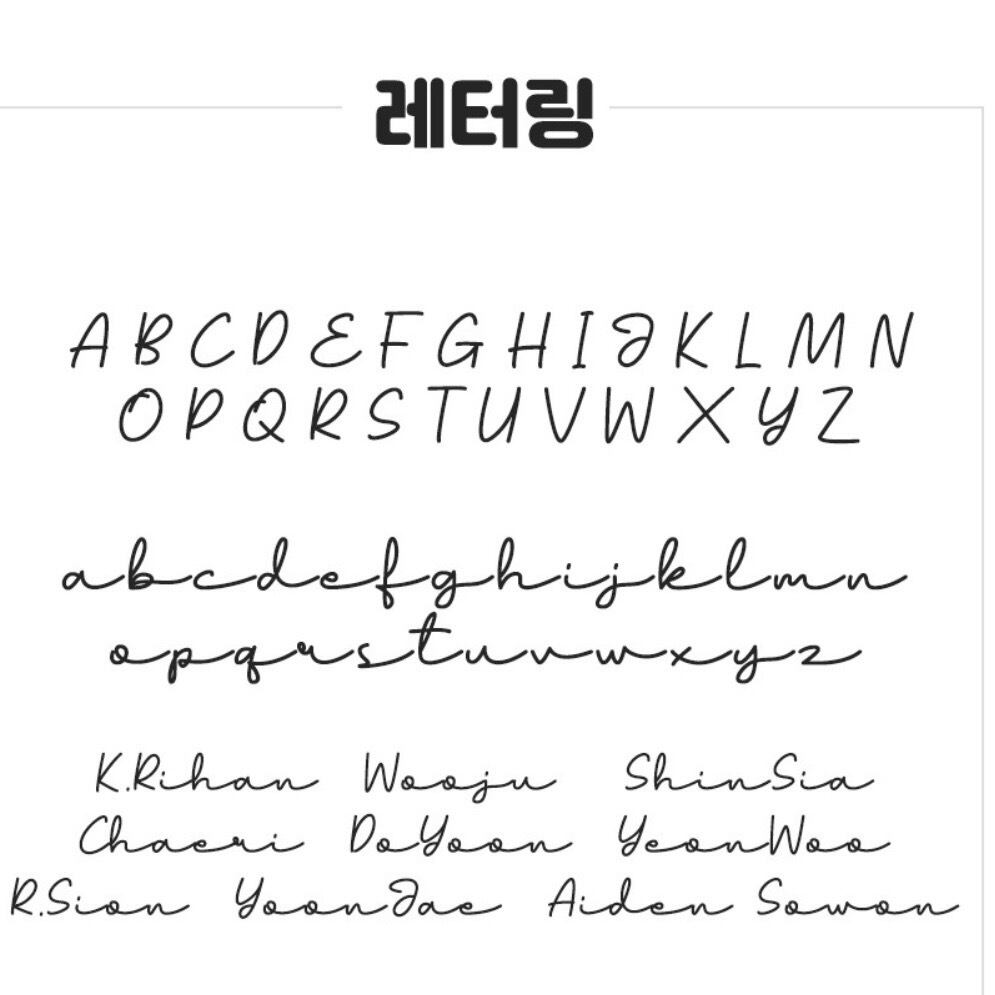 레터링
A B C D E F G H I J K L M N
O P Q R S T U V W X Y Z
abcdefghijklmn
opqrstuvwxyz
K.Rihan Wooju ShinSia
Chaeri DoYoon YeonWoo
R.Sion YoonJae Aiden Sowon